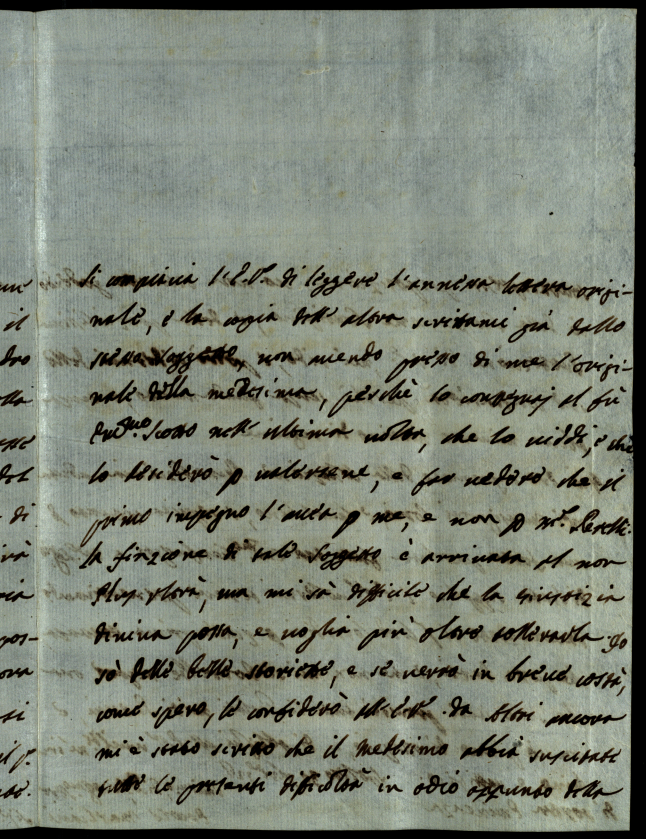 Si compiacia l'E.V. di leggere l'annessa lettera origi-
nale, e la copia dell'altra scrittami già dallo
stesso soggetto, non avendo presso di me l'origi-
nale della medesima, perchè lo consegnai al fù
Scotto nell'ultima volta, che lo viddi, e che
lo desiderò p valersene, e far vedere che il
primo impegno l'avea p me, e non p Mr.
la finzione di tale soggetto è arrivata al non
plus ultra, ma mi sà difficile che la giustizia
divina possa, e voglia più oltre tollerarla. Io
sò delle belle storiette, e se verrò in breve costà,
come spero, le confiderò all'E.V. da altri ancora
mi è stato scritto che il medesimo abbia suscitate
tutte le presenti difficoltà in odio appunto della